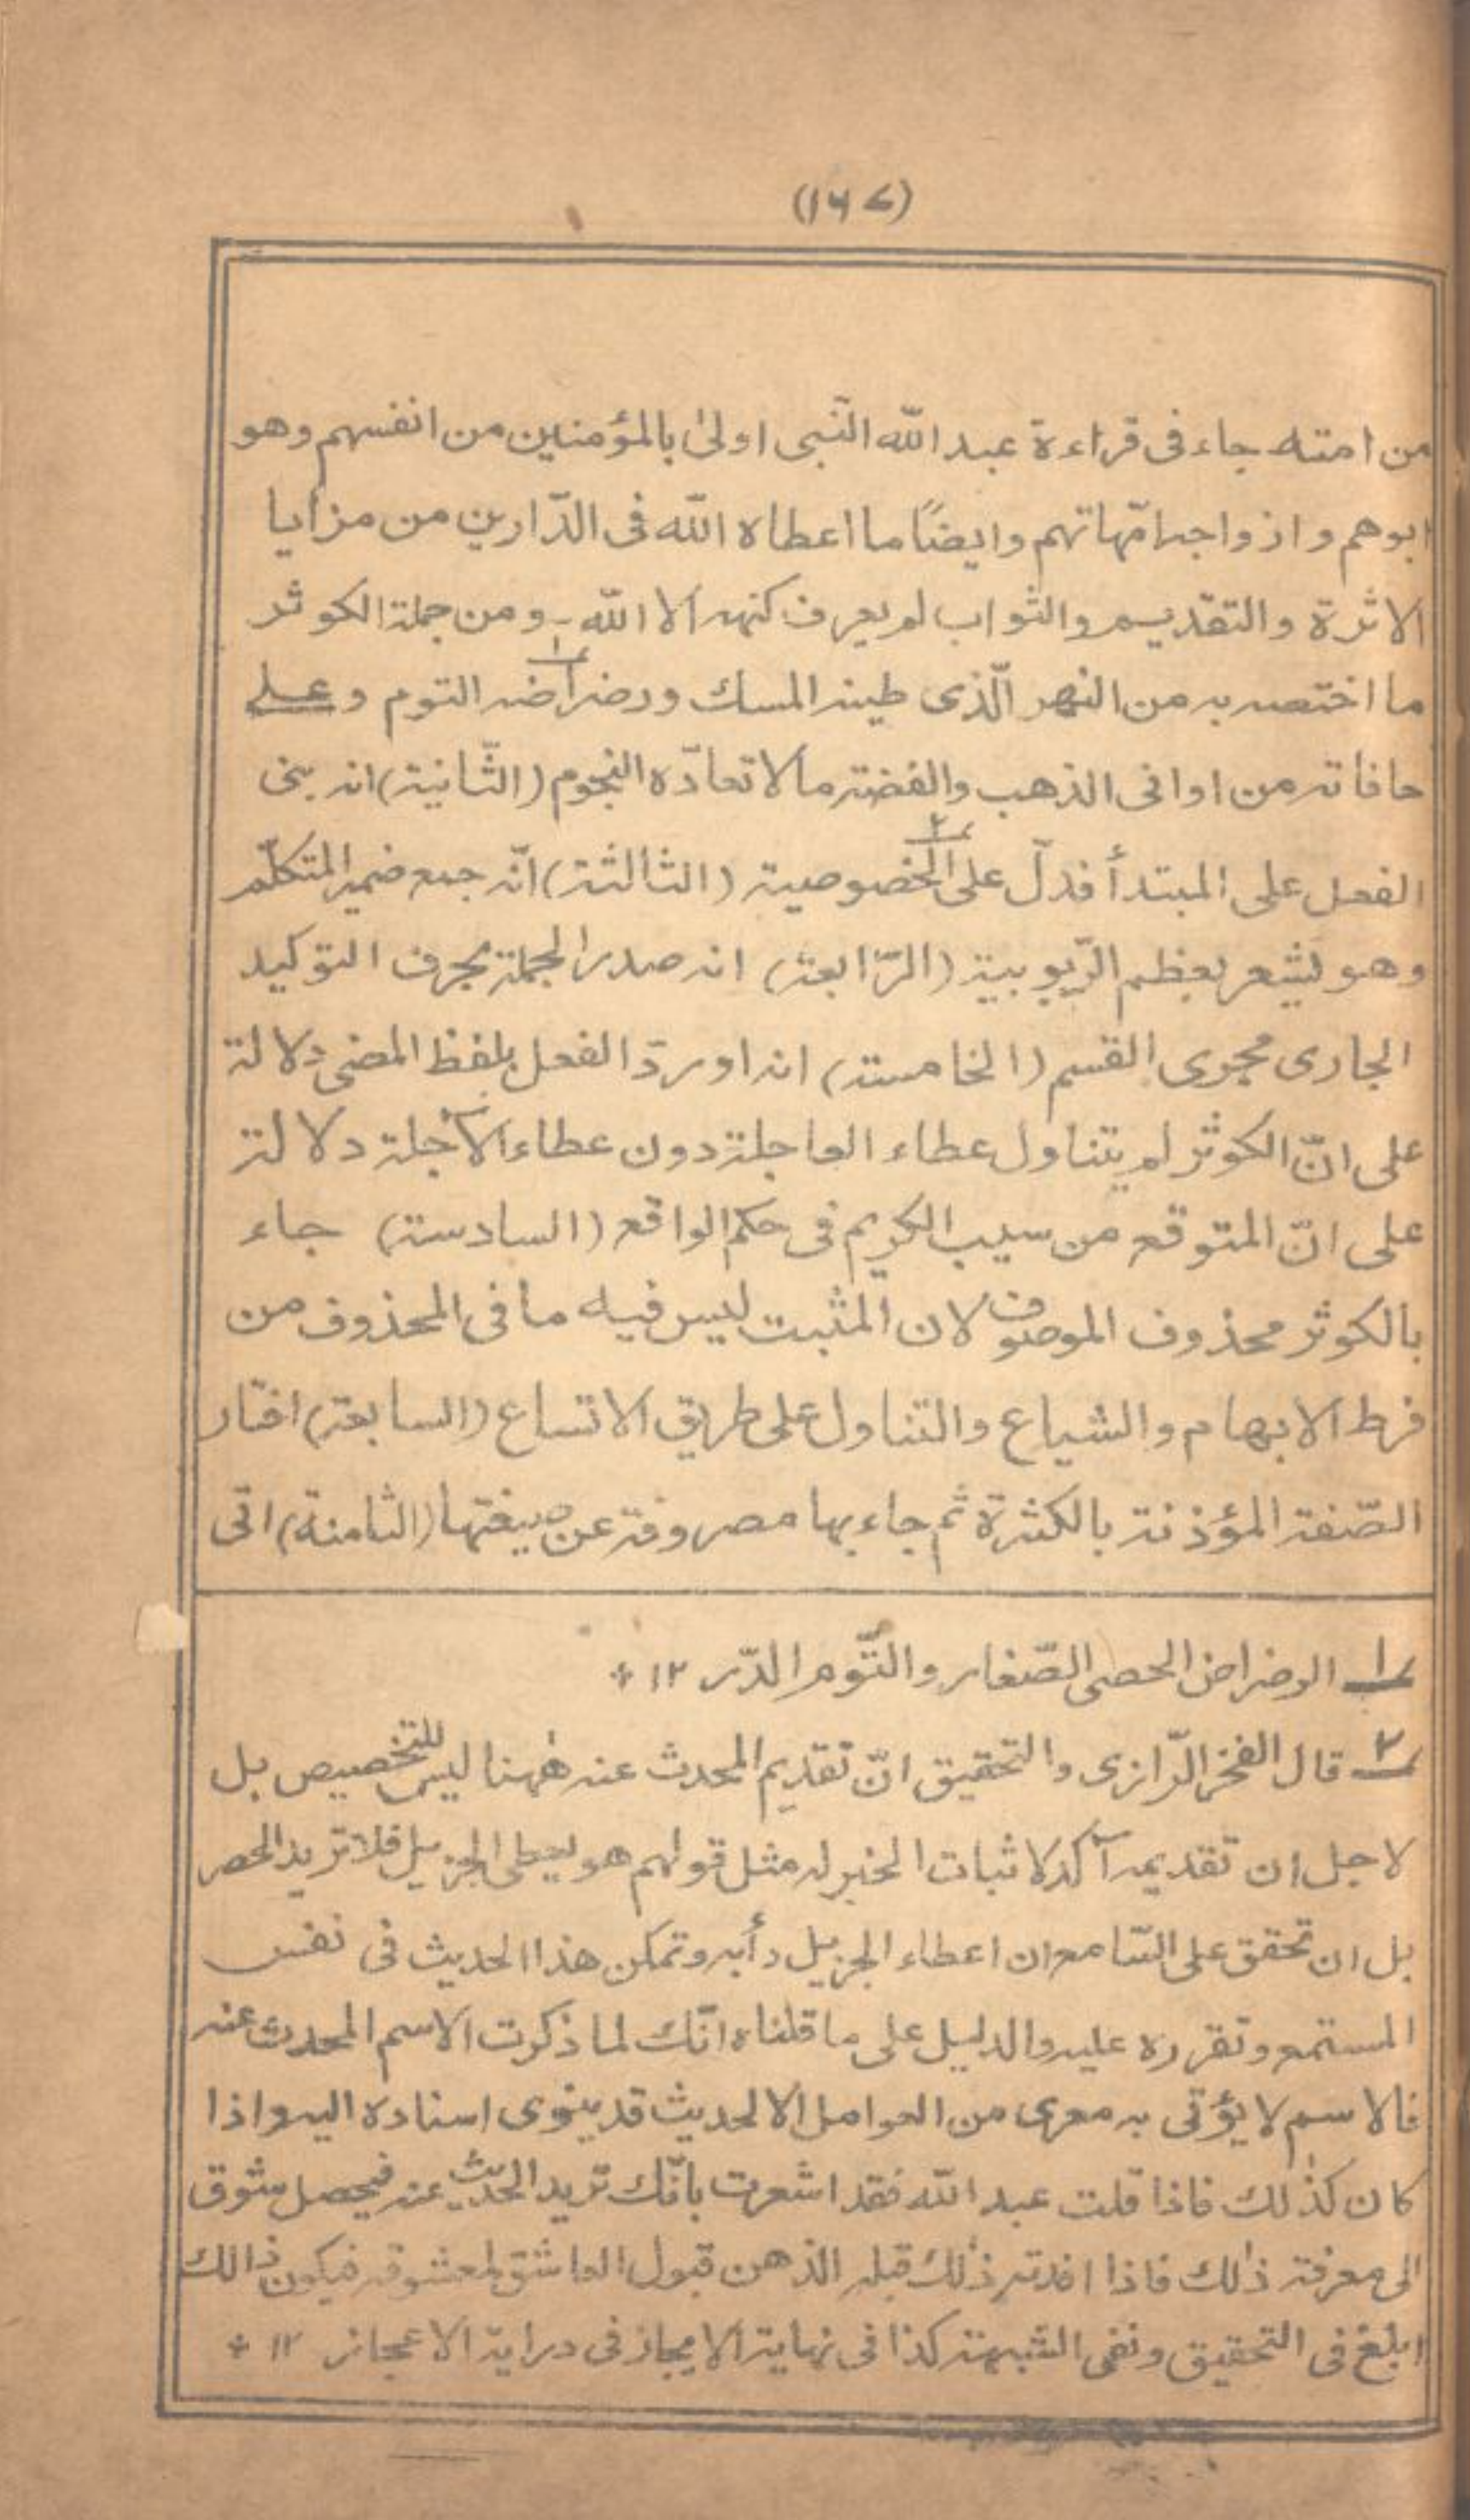 (١٦٧)
من امته جاء فی قراءة عبد الله النّبی اولیٰ بالمؤمنین من انفسهم وهو
ابوهم وازواجه امّهاتهم وایضًا ما اعطاه الله فی الدّارین من مزایا
الاثرة والتقدیم والثواب لم یعرف کنهه الا الله ۔ ومن جملة الکوثر
ما اختصه به من النهر الّذی طینه المسك ورضراضه١ التوم وعلے
حافاته من اوانی الذهب والفضة ما لا تعادّه النجوم (الثّانیة) انه بنی
الفعل علی المبتدأ فدلّ علی الخصوصیة٢ (الثالثة) انّه جمع ضمیر المتکلّم
وهو یشعر بعظم الرّبوبیة (الرّابعة) انه صدر الجملة بحرف التوکید
الجاری مجری القسم (الخامسة) انه اورد الفعل بلفظ المضی دلالة
علی انّ الکوثر لم یتناول عطاء العاجلة دون عطاء الآجلة دلالة
علی انّ المتوقع من سیب الکریم فی حکم الواقع (السادسة) جاء
بالکوثر محذوف الموصوف لان المثبت لیس فیه ما فی المحذوف من
فرط الابهام والشیاع والتناول علی طریق الاتساع (السابعة) اختار
الصّفة المؤذنة بالکثرة ثم جاء بها مصروفة عن صیغتها (الثامنة) اتی
١ الرضراض الحصی الصّغار والتّوم الدّر ١٢ *
٢ قال الفخر الرّازی والتحقیق انّ تقدیم المحدث عنه هٰهنا لیس للتخصیص بل
لاجل ان تقدیمه آکد لاثبات الخبر له مثل قولهم هو یعطی الجزیل فلا ترید الحصر
بل ان تحقق علی السّامع ان اعطاء الجزیل دأبه وتمکن هذا الحدیث فی نفس
المستمع وتقرره علیه والدلیل علی ما قلناه انّك لما ذکرت الاسم المحدث عنه
فالاسم لا یؤتی به معری من العوامل الا لحدیث قد ینوی اسناده الیه واذا
کان کذٰلك فاذا قلت عبد الله فقد اشعرت بانّك ترید الحدیث عنه فیحصل شوق
الی معرفة ذٰلك فاذا افدته ذٰلك قبله الذهن قبول العاشق لمعشوقه فیکون ذٰلك
ابلغ فی التحقیق ونفی الشبهة کذا فی نهایة الایجاز فی درایة الاعجاز ١٢ *